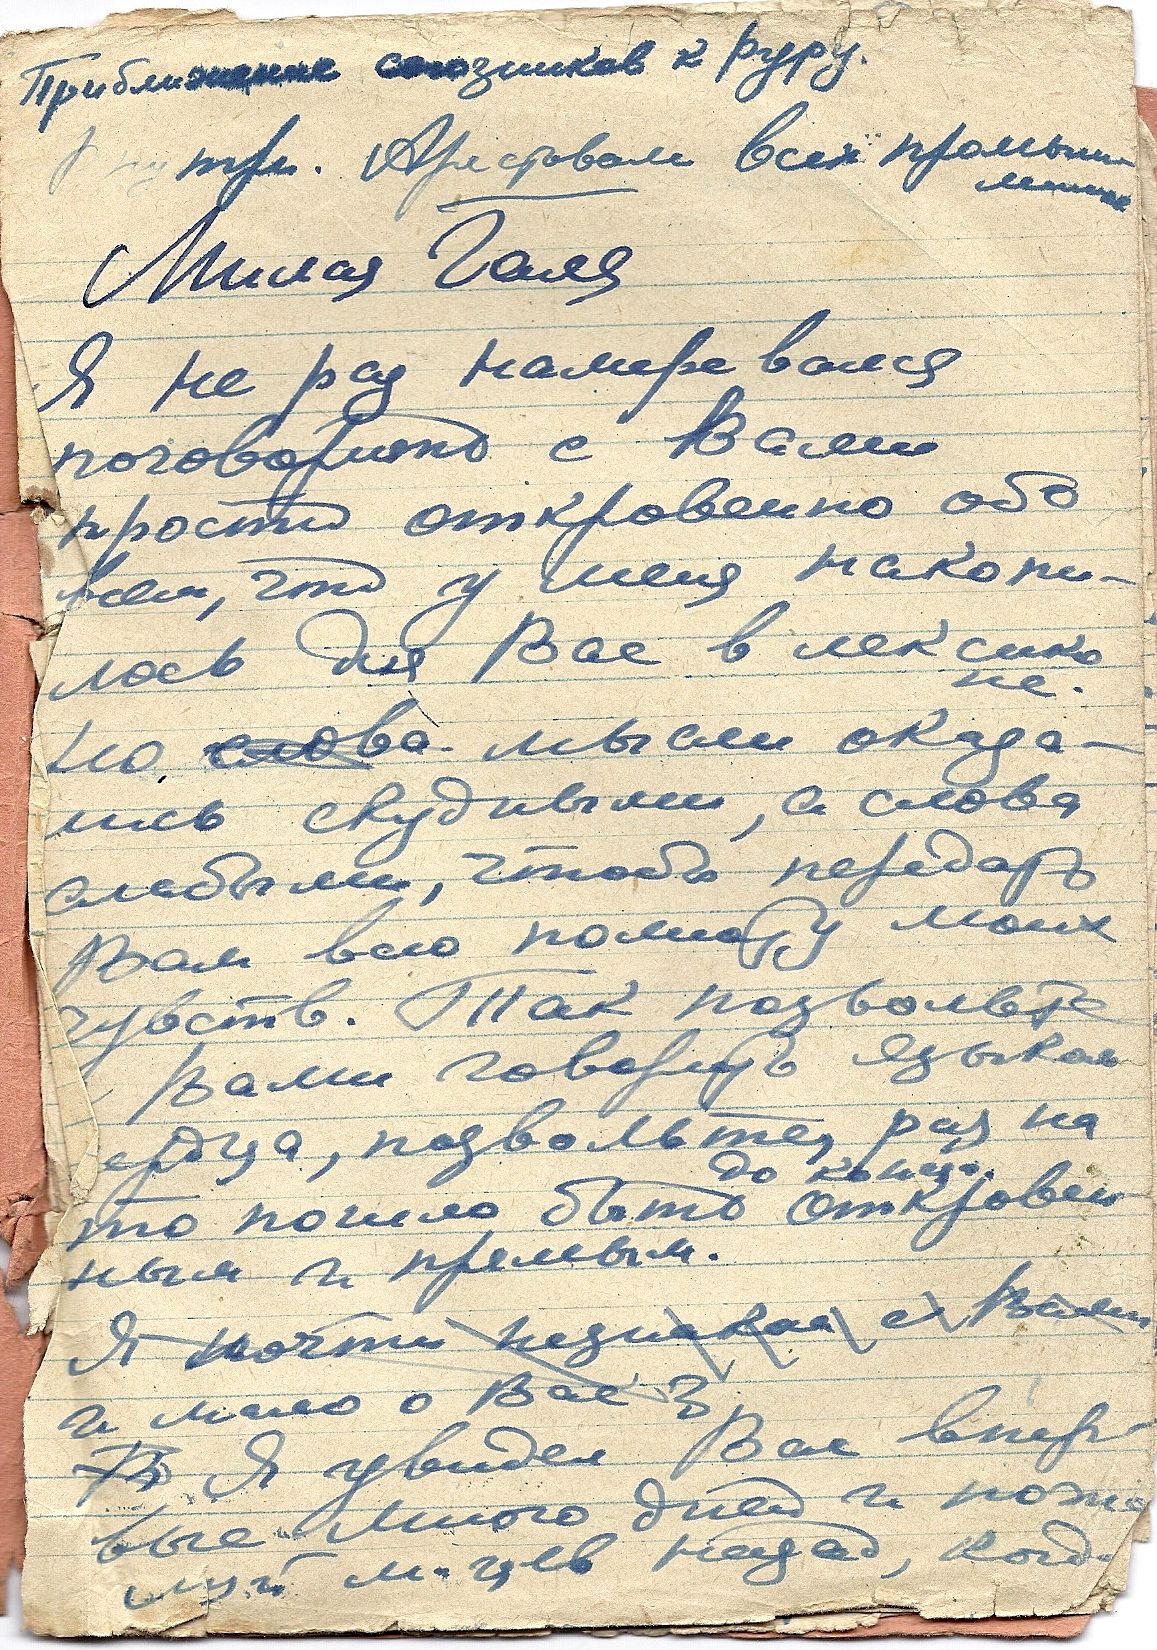 Приближение союзников к Руру.
Арестовали всех промыш-
Милая Галя
Я не раз намеревался
поговорить с Вами
просто откровенно обо
всем, что у меня накопи-
лось для Вас в лексико
не.
Но слова мысли оказа-
лись скудными, а слова
слабыми, чтобы передать
Вам всю полноту моих
чувств. Так позвольте
Вами говорить языком
ердца, позвольте, раз на
до конца.
то пошло быть откровен
ным и прямым.
Я почти незнаком с Вами
и мало о Вас з
Я увидел Вас впер-
вые много дней и пожа
луй м-цев назад, когда